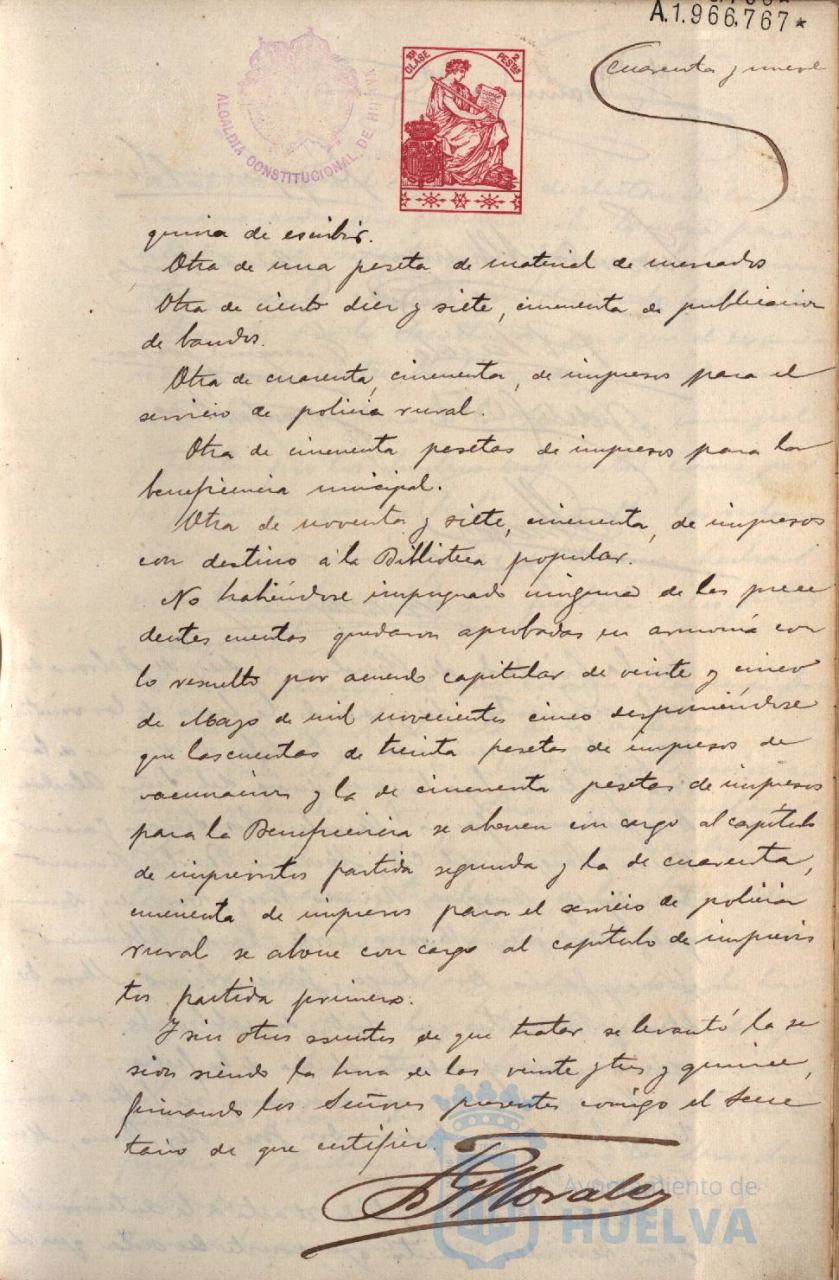 A.1.966.767*
10ª CLASE
2 PESTAS
ALCALDIA CONSTITUCIONAL DE HUELVA
Cuarenta y nueve
quina de escribir.
Otra de una peseta de material de mercados
Otra de ciento diez y siete, cincuenta de publicacion
de bandos.
Otra de cuarenta, cincuenta, de impresos para el
servicio de policia rural.
Otra de cincuenta pesetas de impresos para la
beneficencia municipal.
Otra de noventa y siete, cincuenta, de impresos
con destino á la Biblioteca popular.
No habiéndose impugnado ninguna de las prece
dentes cuentas quedaron aprobadas en armonia con
lo resuelto por acuerdo capitular de veinte y cinco
de Mayo de mil novecientos cinco disponiéndose
que las cuentas de treinta pesetas de impresos de
vacunacion y la de cincuenta pesetas de impresos
para la Beneficencia se abonen con cargo al capítulo
de imprevistos partida segunda y la de cuarenta,
cincuenta de impresos para el servicio de policia
rural se abone con cargo al capítulo de imprevis
tos partida primera.
Y sin otros asuntos de que tratar se levantó la se
sion siendo la hora de las veinte y tres y quince,
firmando los Señores presentes conmigo el Secre
tario de que certifico.
Morales
Ayuntamiento de
HUELVA